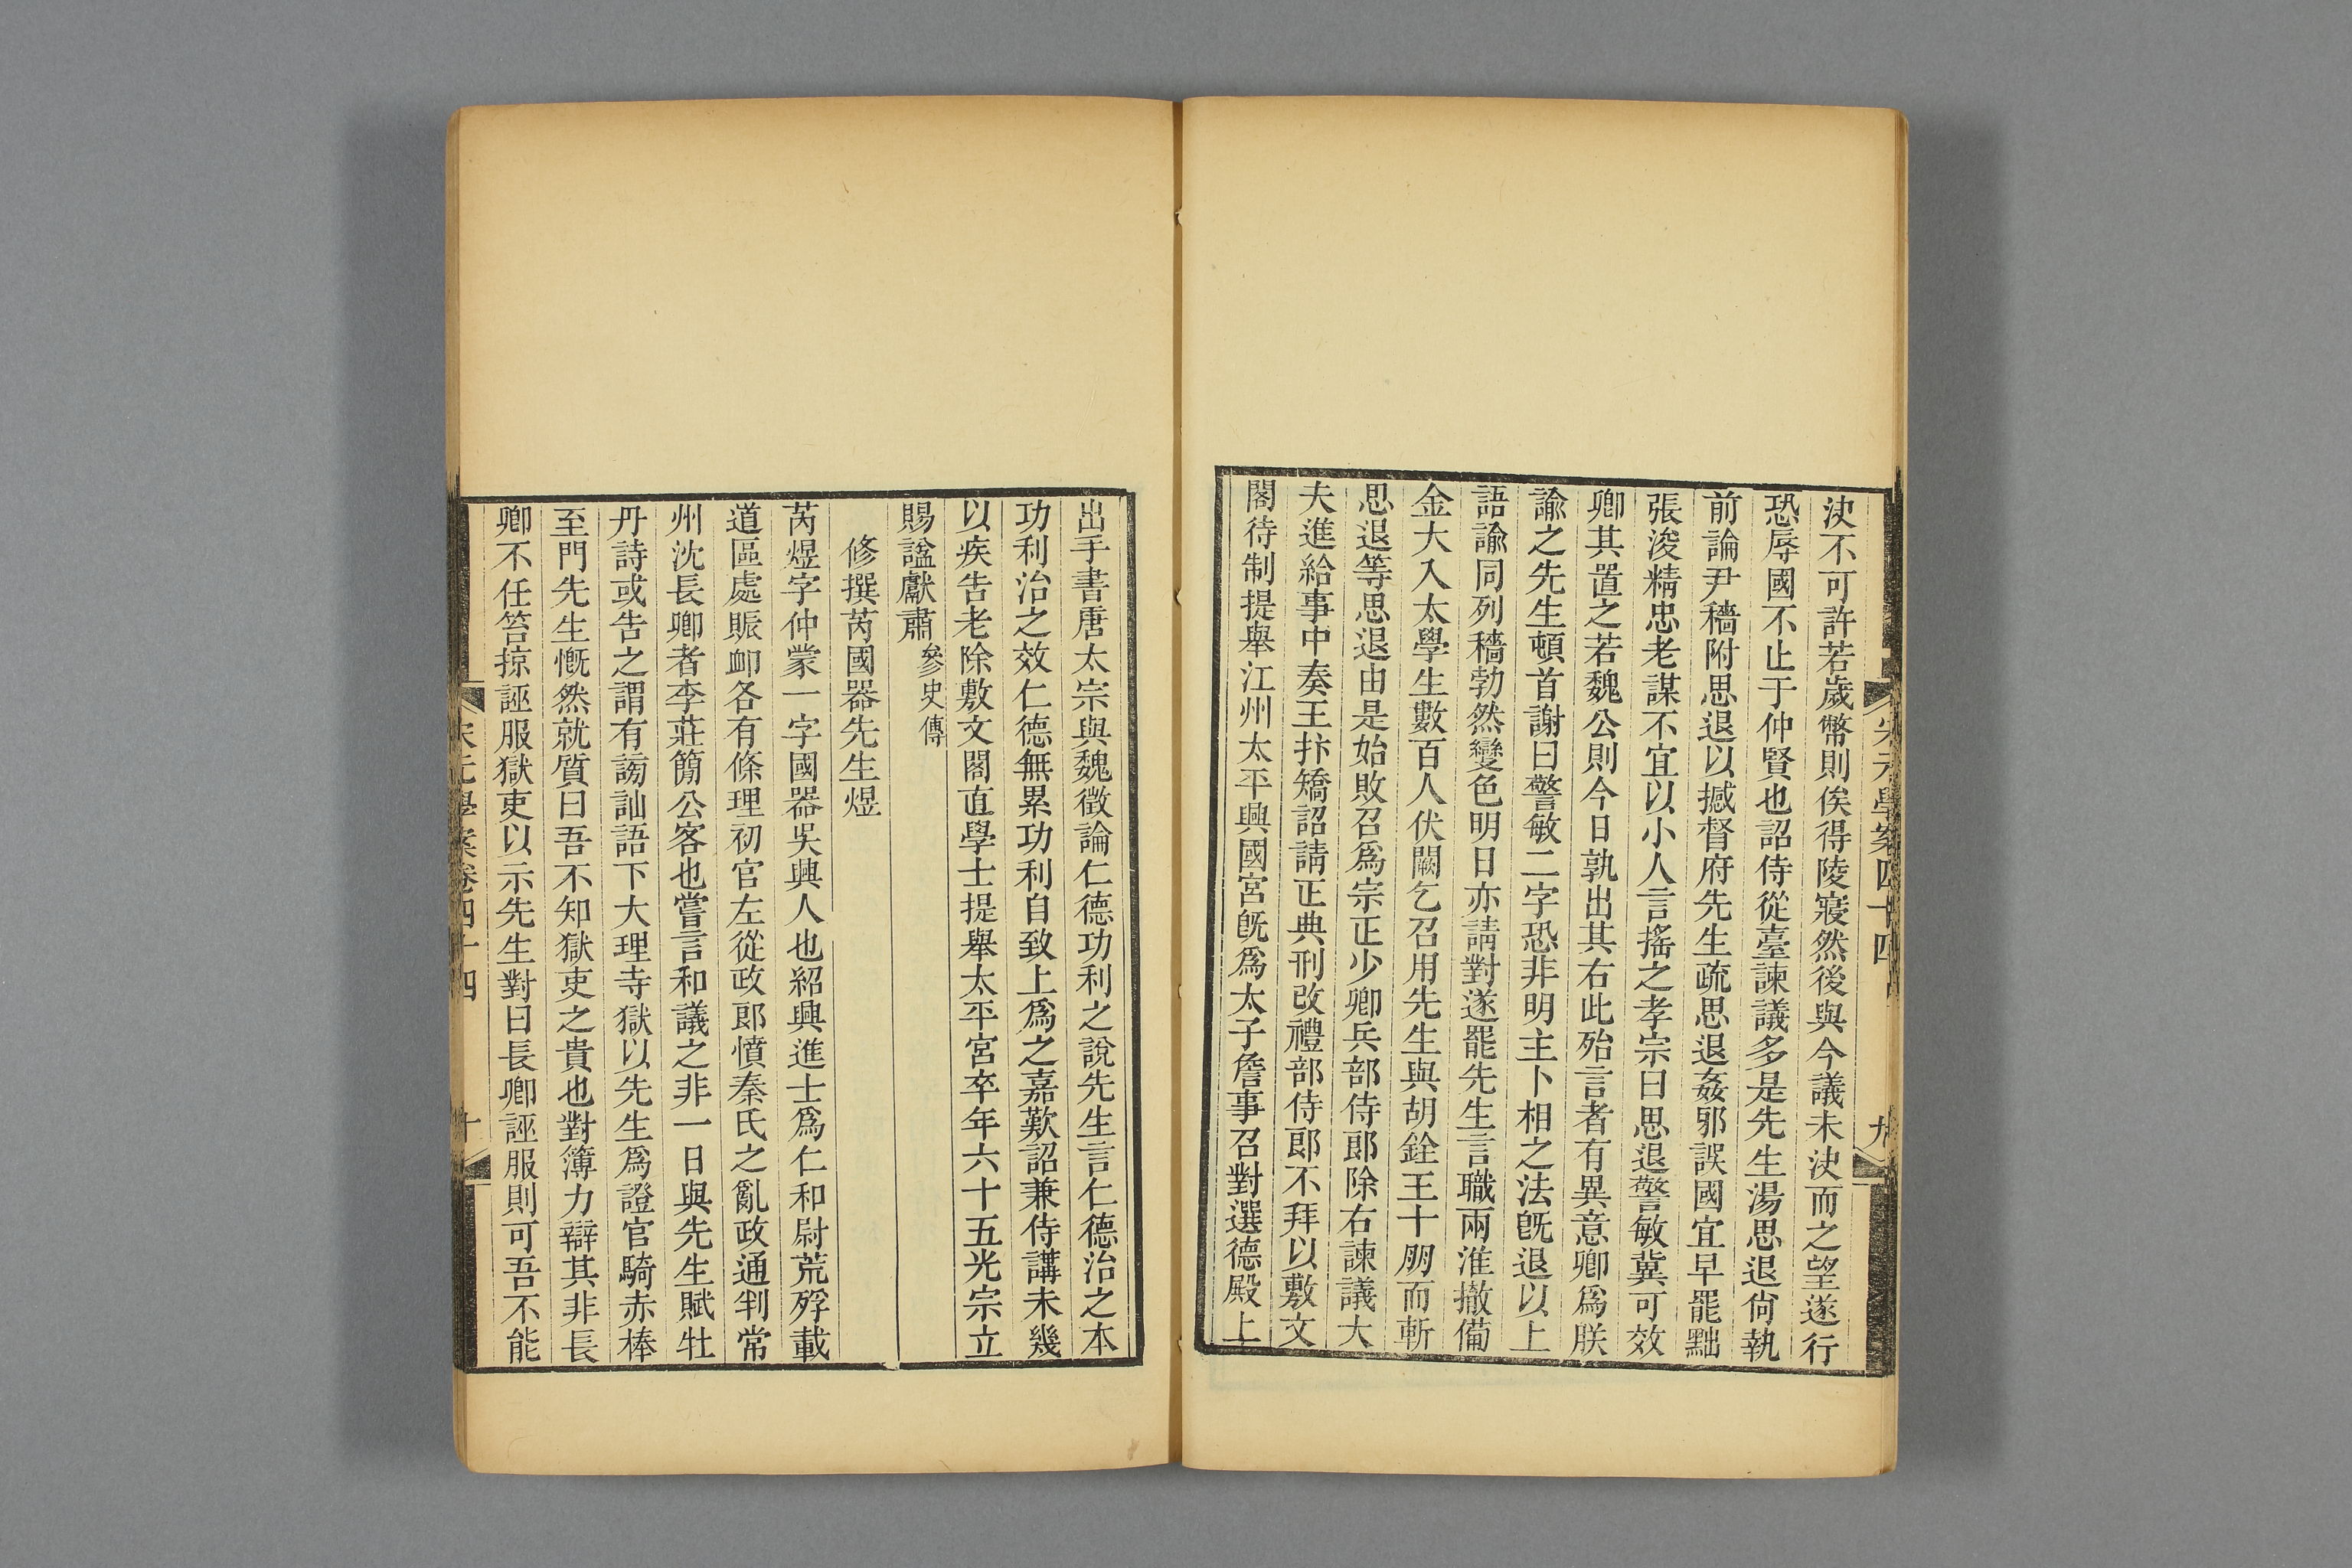 宋元學案四十四
九
決不可許若歲幣則俟得陵寢然後與今議未決而之望遂行
恐辱國不止于仲賢也詔侍從臺諫議多是先生湯思退尙執
前論尹穡附思退以撼督府先生疏思退姦邪誤國宜早罷黜
張浚精忠老謀不宜以小人言搖之孝宗曰思退警敏冀可效
卿其置之若魏公則今日孰出其右此殆言者有異意卿爲朕
諭之先生頓首謝曰警敏二字恐非明主卜相之法旣退以上
語諭同列穡勃然變色明日亦請對遂罷先生言職兩淮撤備
金大入太學生數百人伏闕乞召用先生與胡銓王十朋而斬
思退等思退由是始敗召爲宗正少卿兵部侍郞除右諫議大
夫進給事中奏王抃矯詔請正典刑改禮部侍郞不拜以敷文
閣待制提舉江州太平興國宮旣爲太子詹事召對選德殿上
出手書唐太宗與魏徵論仁德功利之說先生言仁德治之本
功利治之效仁德無累功利自致上爲之嘉歎詔兼侍講未幾
以疾告老除敷文閣直學士提舉太平宮卒年六十五光宗立
賜諡獻肅參史傳
修撰芮國器先生煜
芮煜字仲蒙一字國器吳興人也紹興進士爲仁和尉荒殍載
道區處賑卹各有條理初官左從政郞憤秦氏之亂政通判常
州沈長卿者李莊簡公客也嘗言和議之非一日與先生賦牡
丹詩或吿之謂有謗訕語下大理寺獄以先生爲證官騎赤棒
至門先生慨然就質曰吾不知獄吏之貴也對簿力辯其非長
卿不任笞掠誣服獄吏以示先生對曰長卿誣服則可吾不能
宋元學案卷四十四
十